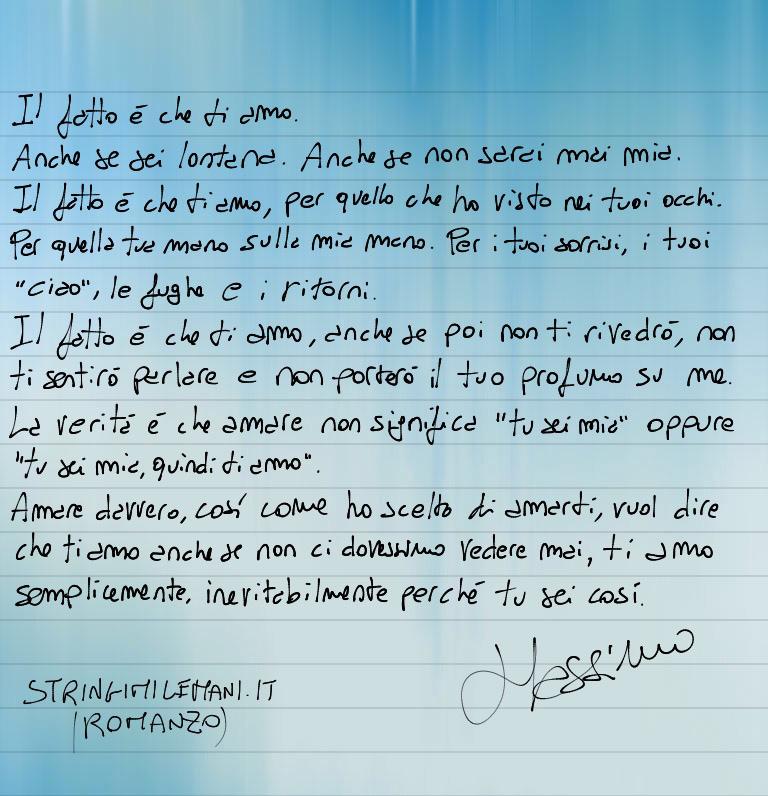 Il fatto è che ti amo.
Anche se sei lontana. Anche se non sarai mai mia.
Il fatto è che ti amo, per quello che ho visto nei tuoi occhi.
Per quella tua mano sulla mia mano. Per i tuoi sorrisi, i tuoi
"ciao", le fughe e i ritorni.
Il fatto è che ti amo, anche se poi non ti rivedrò, non
ti sentirò parlare e non porterò il tuo profumo su me.
La verità è che amare non significa "tu sei mia" oppure
"tu sei mia, quindi ti amo".
Amare davvero, così come ho scelto di amarti, vuol dire
che ti amo anche se non ci dovessimo vedere mai, ti amo
semplicemente, inevitabilmente perché tu sei così.
Massimo
STRINGIMILEMANI.IT
(ROMANZO)